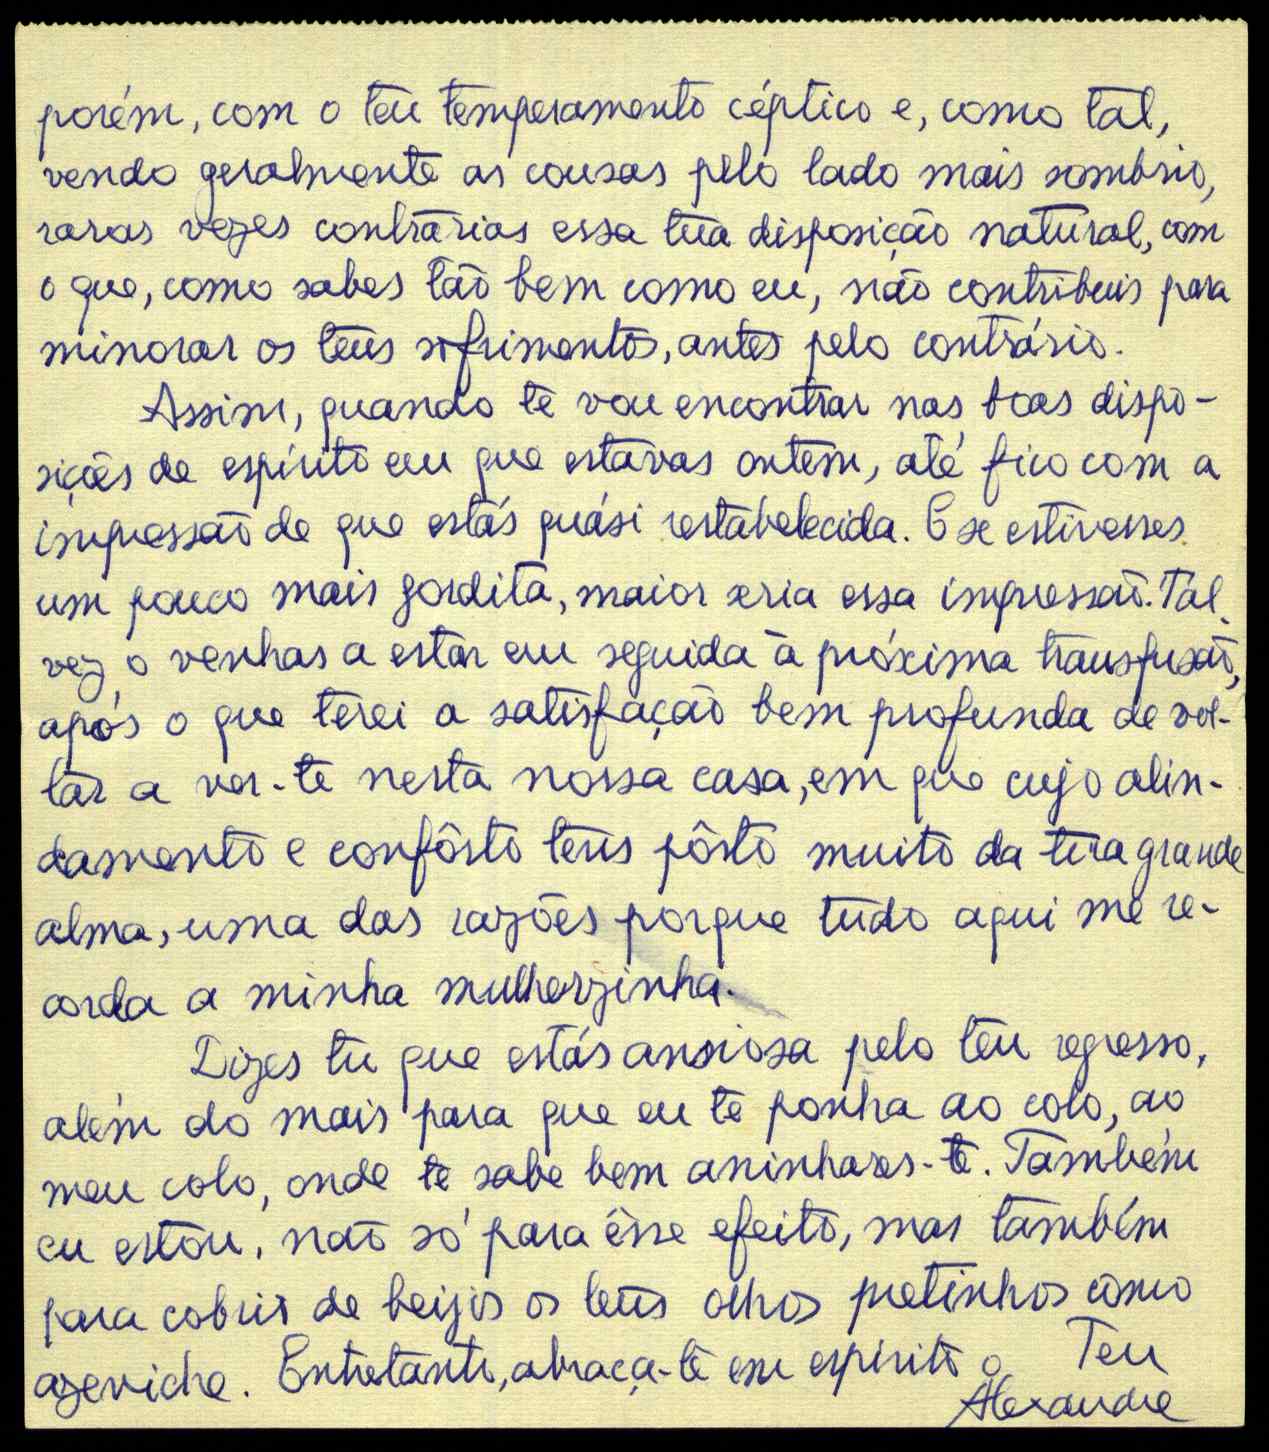 porém, com o teu temperamento céptico e, como tal,
vendo geralmente as cousas pelo lado mais sombrio,
raras vezes contrárias essa tua disposição natural, com
o que, como sabes tão bem como eu, não contribuis para
minorar os teus sofrimentos, antes pelo contrário.
Assim, quando te vou encontrar nas boas dispo-
sições de espírito em que estavas ontem, até fico com a
impressão de que estás quási restabelecida. E se estivesses
um pouco mais gordita, maior seria essa impressão. Tal
vez o venhas a estar em seguida à próxima transfusão,
após o que terei a satisfação bem profunda de vol-
tar a ver-te nesta nossa casa, em que cujo alin-
damento e confôrto tens pôsto muito da tua grande
alma, uma das razões porque tudo aqui me re-
corda a minha mulherzinha.
Dizes tu que estás ansiosa pelo teu regresso,
além do mais para que eu te ponha ao colo, ao
meu colo, onde te sabe bem aninhares-te. Também
eu estou, não só para êsse efeito, mas também
para cobrir de beijos os teus olhos pretinhos como
azeviche. Entretanto, abraça-te em espírito o Teu
Alexandre